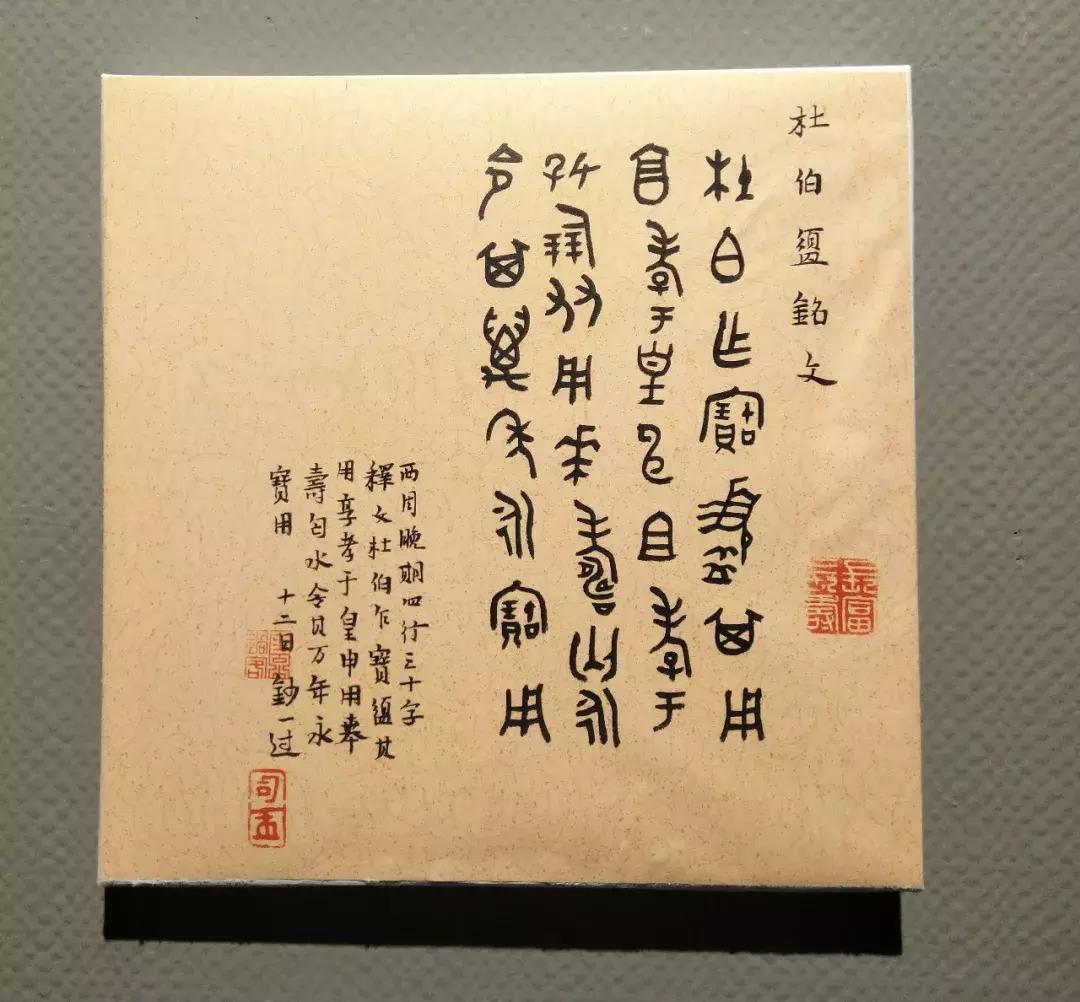 杜伯盨銘文
杜白乍寶盨其用
享孝于皇申且考于
好倗友用𠦪壽匄永
令其萬年永寶用
西周晚期四行三十字
釋文杜伯乍寶盨其
用享孝于皇申用𠦪
壽匄永令其万年永
寶用 十二日鈔一过